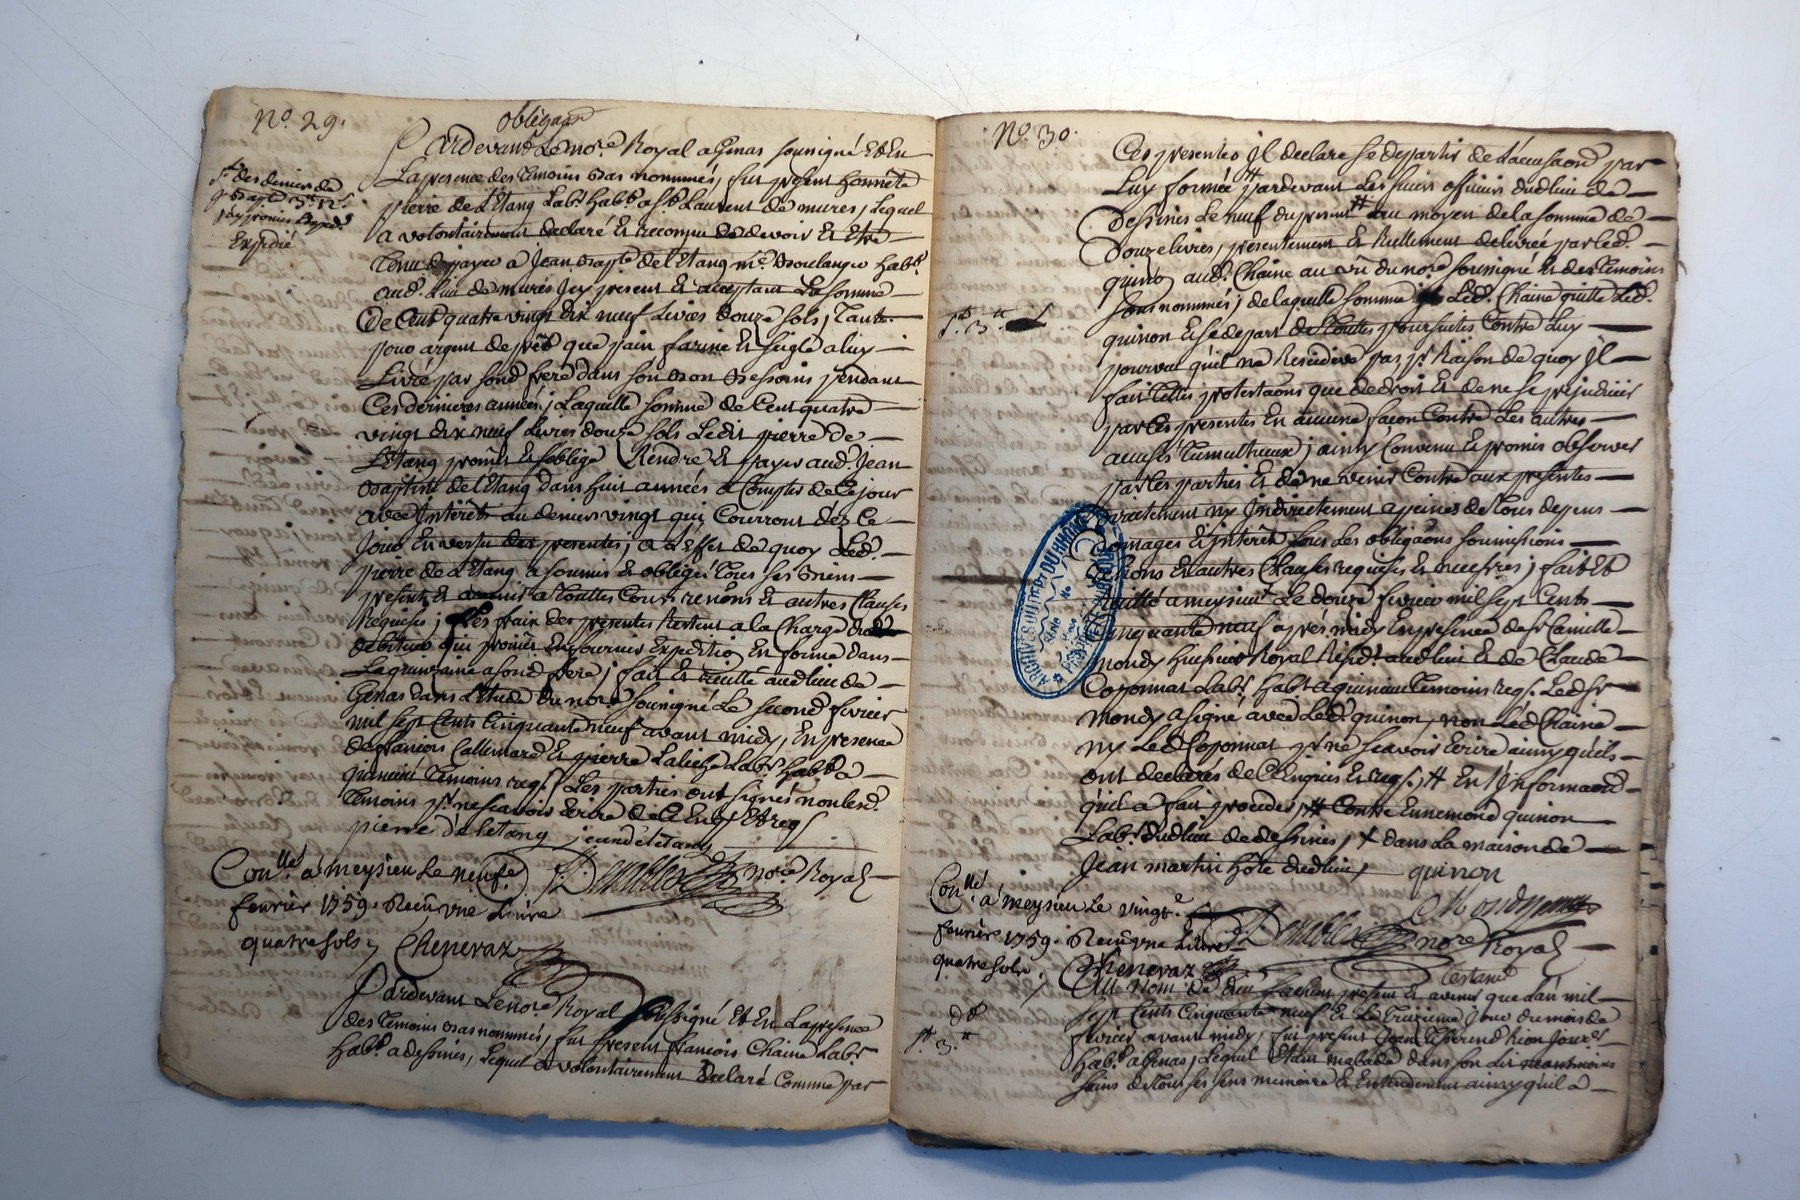 No. 29.
obliga͞on
Pardevant Le nore. Royal a Genas soussigné Et En
La presence des temoins bas nommés, fut present honnête
pierre de L'Etang Labr. habt. a St. Laurent de mures, Lequel
a volontairement declaré Et reconnu de devoir Et Etre
tenu de payer a Jean bapte. de letang me. boulanger habt.
aud. Lieu de mures Jcy present Et acceptant La somme
de Cent quatre vingt dix neuf Livres douze sols, Tant
pour argent de prêt que pain farine Et seigle a luy
Livré par sond. frere dans son bon besoins pendant
Ces dernieres années; Laquelle somme de Cent quatre
vingt dix neuf Livres douze sols Ledit pierre de
L'Etang promet Et s'oblige Rendre Et payer aud. Jean
baptiste de letang dans huit années a Compter de Ce jour
avec Interets au denier vingt qui Courront dez Ce
Jour En vertu des presentes; a L'effet de quoy Led.
pierre de L'Etang a soumis Et obligés tous ses biens
presents Et avenir a touttes Cours renons Et autres Clauses
Requises; Les frais des presentes Restent a la Charge dud.
debiteur qui promet En fournir Expedition En forme dans
La quinzaine a sond. frere; fait Et recitté audt. lieu de
Genas dans L'Etude du nore. soussigné Le second fevrier
mil sept Cents Cinquante neuf avant midy, En presence
de francois Callemard Et pierre Laliche Labrs. habts. a
temoins reqs. Les parties ont signés non lesd.
temoins pr. ne scavoir Ecrire de Ce Enqs. Et reqs.
pierre de letang jean de letang
nore Royal
Con.llé a meysieu Le neufe.
fevrier 1759. Reçu vne Livre
quatre sols
Chenevaz
Pardevant Le nore. Royal soussigné Et En La presence
des temoins bas nommés, fut present francois Chaine Labr.
habt. a dessines, Lequel a volontairement declaré Comme par
Expedié
No. 30.
Ces presentes Jl declare se departir de L'accusaon. par
Luy formée pardevant Les sieurs officiers dudt. lieu de
Dessines Le neuf du present # au moyen de la somme de
Douze livres, presentement Et Réellement delivrée par led.
quinon aud. Chaine au vû du nore. soussigné Et des temoins
sous nommés; de laquelle somme Led. Chaine quitte Led.
quinon Et se depart de touttes poursuites Contre Luy
pourvû qu'il ne Recidive pas, pr. Raison de quoy Jl
fait telles protesta͞ons que de droit Et de ne se prejudicier
par Ces presentes En aucune facon Contre Les autres
accusés tumultueux; ainsy Convenu Et promis observer
par Les parties Et de ne venir Contre aux presentes
directement ny Indirectement a peines de tous depens
domages Et Interets sous Les obliga͞ons soumissions
renons Et autres Clauses requises Et necesres; fait Et
recitté a meysieux Le douze fevrier mil sept Cents
Cinquante neuf apres midy En presence de sr. Camille
mondy huissier Royal Residt. audt. lieu Et de Claude
Coponnat Labr. habt. a quincieu temoins reqs. Ledt. sr.
mondy a signé avec Ledt. quinon, non Led. Chaine
ny Led. Coponnat pr. ne scavoir Ecrire ainsy qu'ils
ont declarés de Ce Enquis Et reqs. # En L'Informaon.
qu'il a fait proceder, # Contre Ennemond quinon
Labr. dudt. lieu de dessines, + dans la maison de
Jean martin hôte dudt. lieu, quinon
Mondy
nore Royal
Con.llé a meysieu Le vingt e.
fevrier 1759. Reçu vne Livre
quatre sols.
Chenevaz
testamt.
Au Nom de Dieu sachent presents Et avenir que L'an mil
sept Cents Cinquante neuf Et Le treizieme Jour du mois de
fevrier avant midy, fut present Jean
habt. a Genas, Lequel Etant malade dans son lit neantmoins
sains de tous ses sens memoire Et Entendement ainsy qu'il a
ARCHIVES DU DEPT. DU RHONE